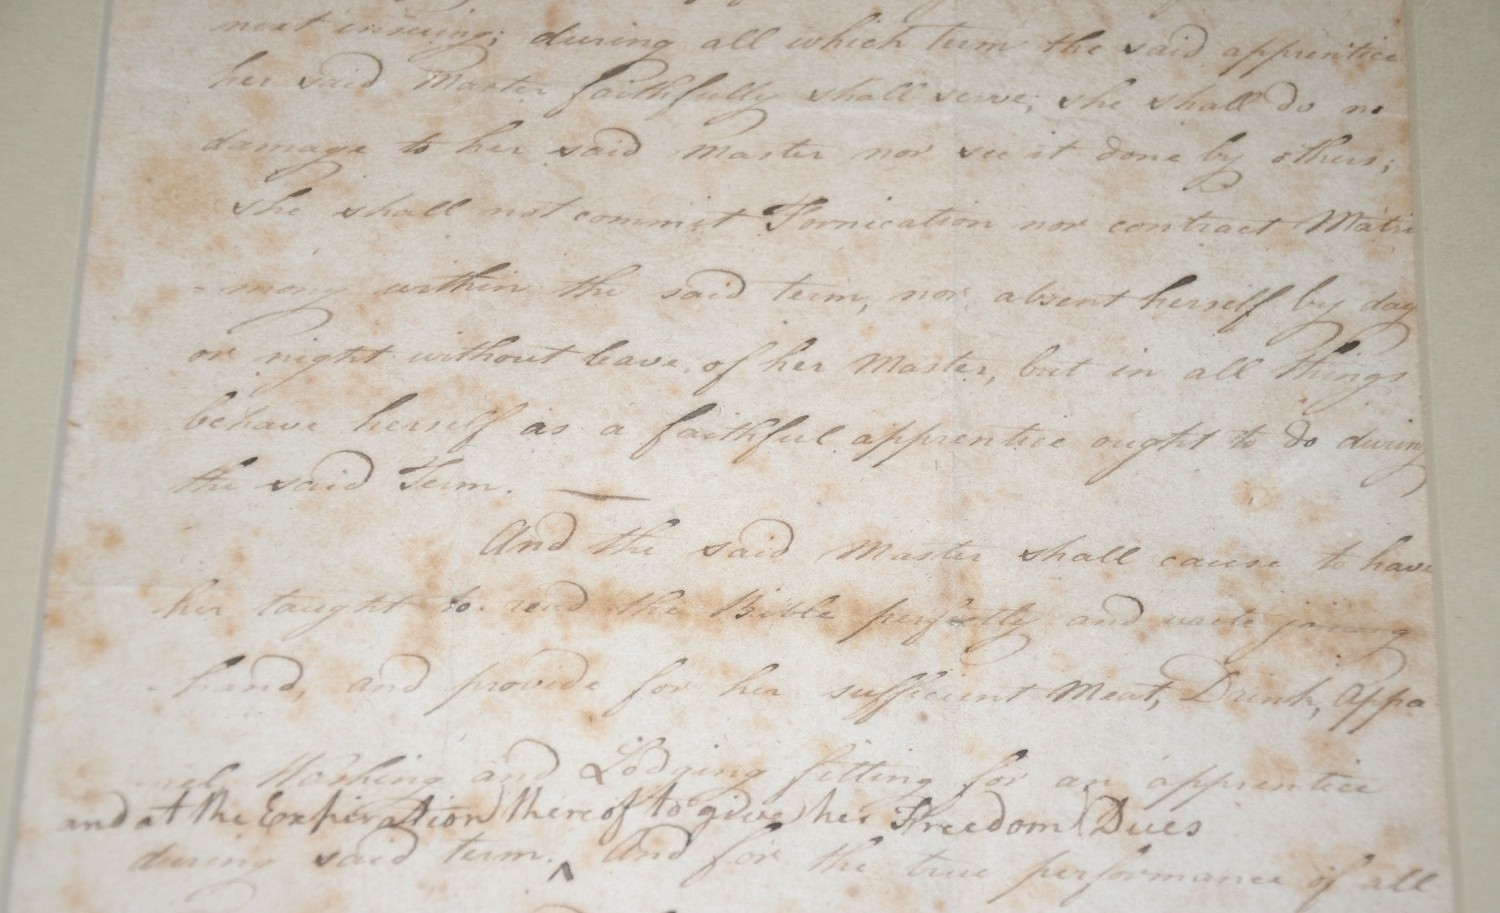 next ensuing; during all which term the said apprentice
her said Master faithfully shall serve; she shall do no
damage to her said Master nor see it done by others;
She shall not commit Fornication nor contract Matri
- mony within the said term, nor absent herself by day
or night without leave of her Master, but in all things
behave herself as a faithful apprentice ought to do during
the said Term. —
And the said Master shall cause to have
her taught to read the Bible perfectly and write joining
- hand, and provide for her sufficient Meat, Drink, Appa
rel Washing and Lodging fitting for an apprentice
and at the Expiration thereof to give her Freedom Dues
during said term. ^ And for the true performance of all